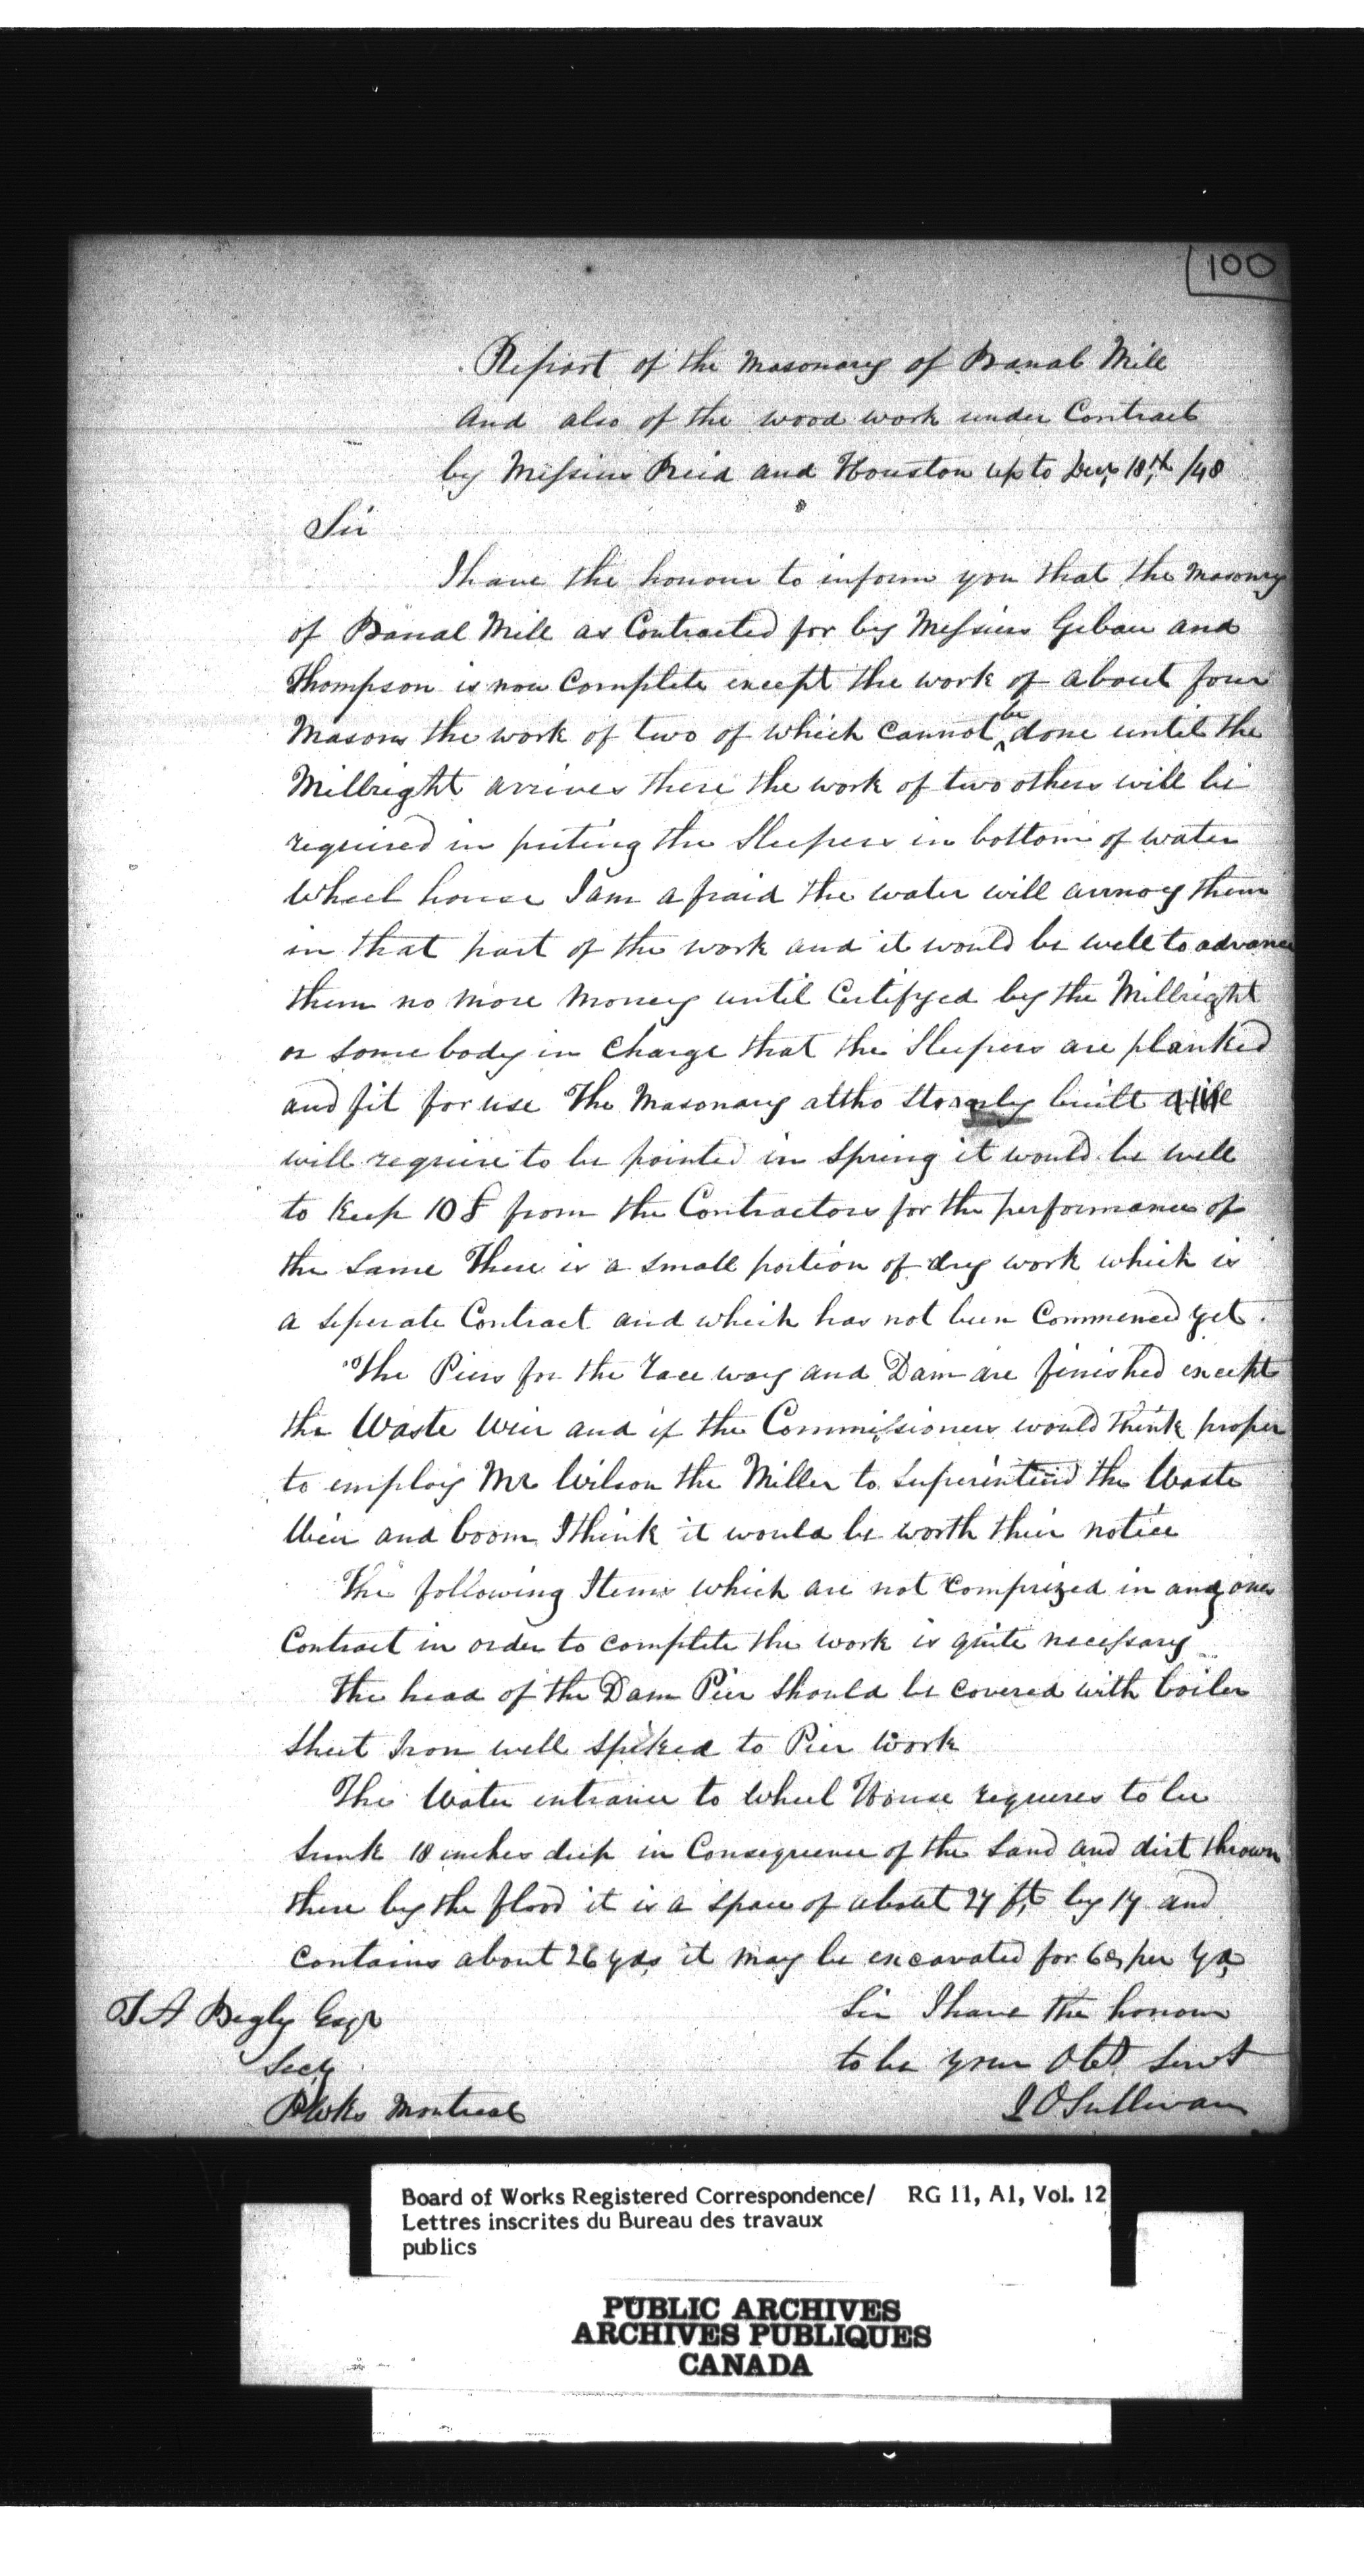 100
Report of the Masonary of Banal Mill
And also of the wood work under Contract
by Messiurs Reid and Houston up to Decr 18th /48
Sir
I have the honour to inform you that the Masonry
of Banal Mill as Contracted for by Messiurs Gibau and
Thompson is now Complete except the work of about four
Masons the work of two of which Cannot be done until the
Millright arrives there the work of two others will be
required in puting the Sleepers in bottom of water
Wheel house I am afraid the water will annoy them
in that part of the work and it would be well to advance
them no more Money until Certifyed by the Millright
or some body in Charge that the Sleepers are planked
and fit for use The Masonary altho built
will require to be pointed in Spring it would be well
to Keep 10 £ from the Contractors for the performance of
the same There is a small portion of dry work which is
a seperate Contract and which has not been Commenced yet.
The Piers for the race way and Dam are finished except
the Waste Weir and if the Commissioners would think proper
to employ Mr Wilson the Miller to Superintend the Waste
Weir and boom I think it would be worth their notice
The following Items which are not Comprized in any ones
Contract in order to complete the work is quite necessary
The head of the Dam Pier should be covered with boiler
sheet Iron well spiked to Pier Work
The Water entrance to Wheel House requires to be
Sunk 18 inches deep in Consequence of the Sand and dirt thrown
there by the flood it is a space of about 27 ft by 17 and
Contains about 26 yds it may be excavated for per yd
T A Begly Esqr
Sir I have the honour
Secty
to be your Obt Servt
P Wks Montreal
J O Sullivan
Board of Works Registered Correspondence/ RG 11, A1, Vol. 12
Lettres inscrites du Bureau des travaux
publics
PUBLIC ARCHIVES
ARCHIVES PUBLIQUES
CANADA